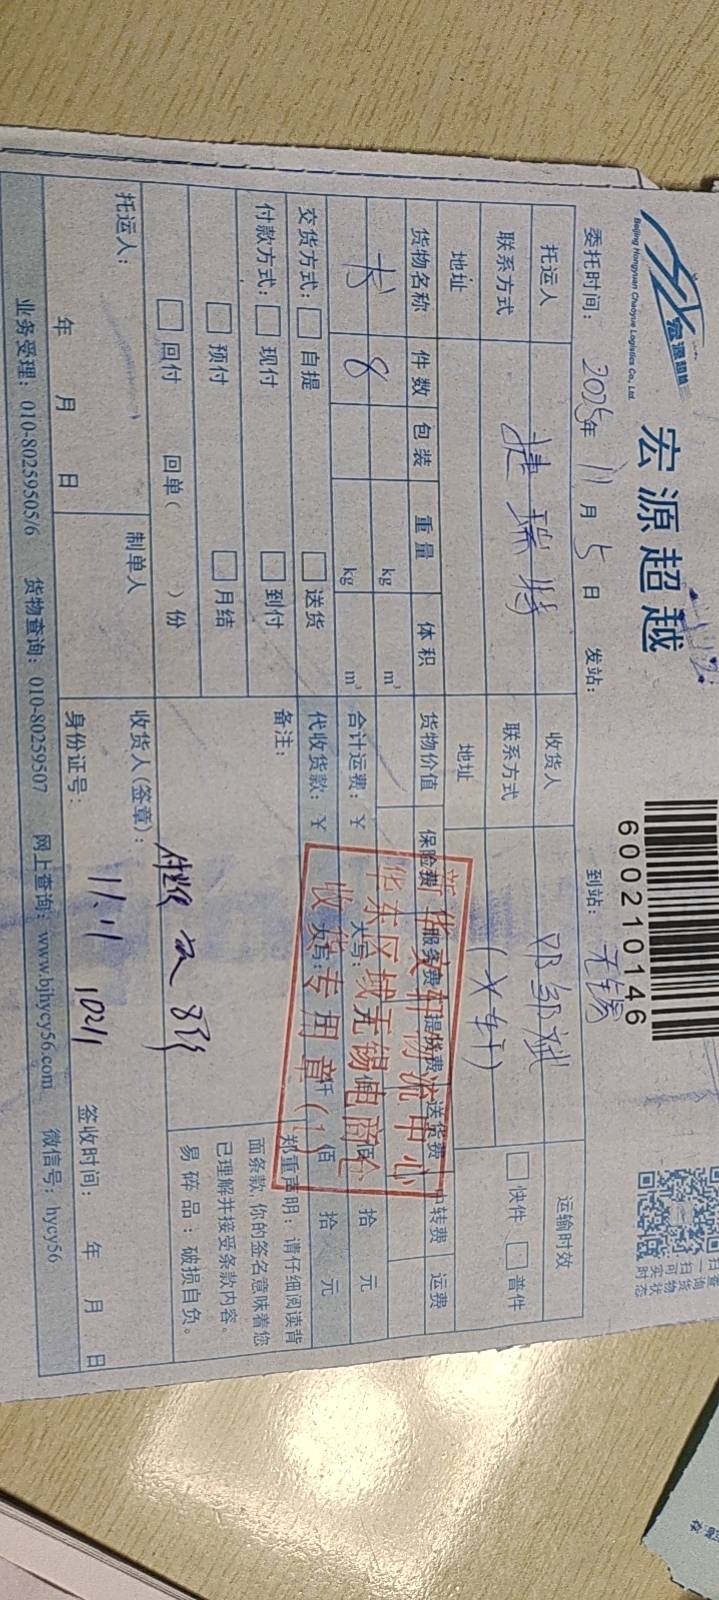 宏源超越
Beijing Hongyuan Chaoyue Logistics Co., Ltd.
宏源超越
600210146
扫查
一询
扫货
可物
实状
时态
委托时间: 2025年 11月 5日 发站: 到站: 无锡
托运人 捷瑞特 收货人 邓绍斌 运输时效
联系方式 联系方式 □快件 □普件
地址 地址
货物名称 件数 包装 重量 体积 货物价值 保险费 服务费 提货费 送货费 中转费 运费
kg m³
8 kg m³ 合计运费: ¥ 大写: 仟 佰 拾 元
交货方式: □自提 □送货 代收货款: ¥ 大写: 仟 佰 拾 元
付款方式: □现付 □到付 备注:
□预付 □月结
□回付 回单( )份
郑重声明: 请仔细阅读背
面条款,你的签名意味着您
已理解并接受条款内容。
易碎品: 破损自负。
新华文轩物流中心
华东区域无锡电商仓
收货专用章(1)
托运人: 制单人 收货人(签章):
年 月 日 身份证号: 11.11 签收时间: 年 月 日
业务受理: 010-80259505/6 货物查询: 010-80259507 网上查询: www.bjhycy56.com 微信号: hycy56